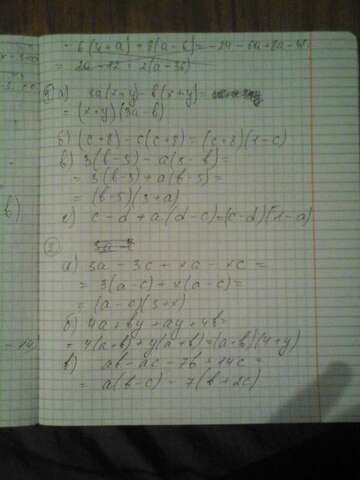 - 6(4+a) + 8(a-6) = -24 - 6a + 8a - 48
= 2a - 72 = 2(a-36)
а) 3a(x+y) - b(x+y) =
= (x+y)(3a-b)
б) (c+8) - c(c+8) = (c+8)(1-c)
в) 3(b-5) - a(5-b) =
= 3(b-5) + a(b-5) =
= (b-5)(3+a)
г) c-d + a(d-c) = (c-d)(1-a)
а) 3a - 3c + xa - xc =
= 3(a-c) + x(a-c) =
= (a-c)(3+x)
б) 4a + by + ay + 4b =
= 4(a+b) + y(a+b) = (a+b)(4+y)
в) ab - ac - 7b + 14c =
= a(b-c) - 7(b+2c)